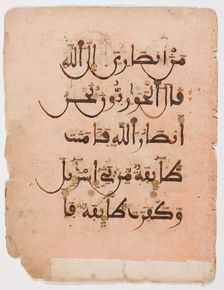 من انصاري الى الله
قال الحواريون نحن
انصار الله فامنت
طائفة من بني اسريل
وكفرت طائفة فا